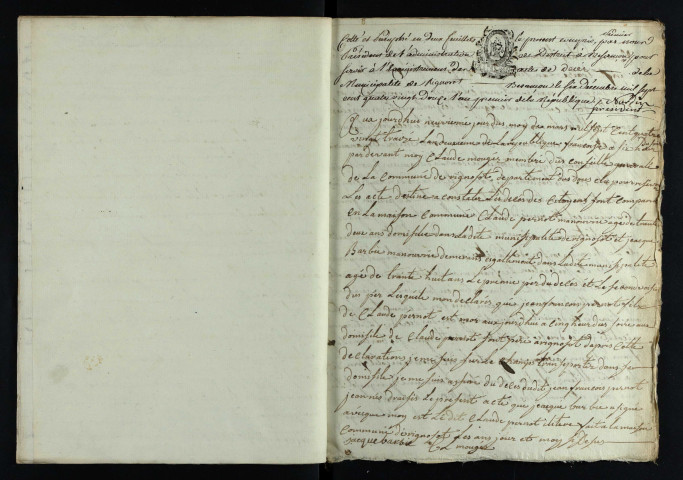 premier
Cotté et Paraphé en deux feuillets le present compris, par nous
President de l'administration du District de Besançon, pour
servir à l'Enregistrement des actes de Décès de la
Municipalité de Rignosot Besançon le six décembre mil sept
cent quatre vingt Douze l'an premier de la République
président
aujourdhuis neuvieme jour du moy de mars mil sept cent quatre
vingt traize la deuxieme de la Republique francoise a six heure du soire
par devant moy Claude mouge membre du conseille generalle
de la Commune de rignosot, departement du doub elu pour recevoir
Les acte destine a constate Les deces des Citoyens sont comparu
En La maison Commune Claude pernot manouvrie age de trante
deux ans domisilie dans ladite munisipalite de rignosot et jacque
Barbie manouvrie demeurant egallement dans ladite munisipalite
age de trante huit ans Le premie
dis per Lesquele mon declairé que jean francois pernot fils
de Claude pernot est mor aujourdhui a cinq heur du soire aux
domisile de Claude pernot son pere a rignosot dapres Cette
declarations je me suis sur le Champ transporté dans ce
domisile je me suis assure du deces dudit jean francois pernot
jean nes draise Le present acte que jacque barbie a signe
avecque moy est Ledit Claude pernot illitere fait a la maison
Commune de rignosot Les ans jour et moy si desus
jacque barbie C L mouge